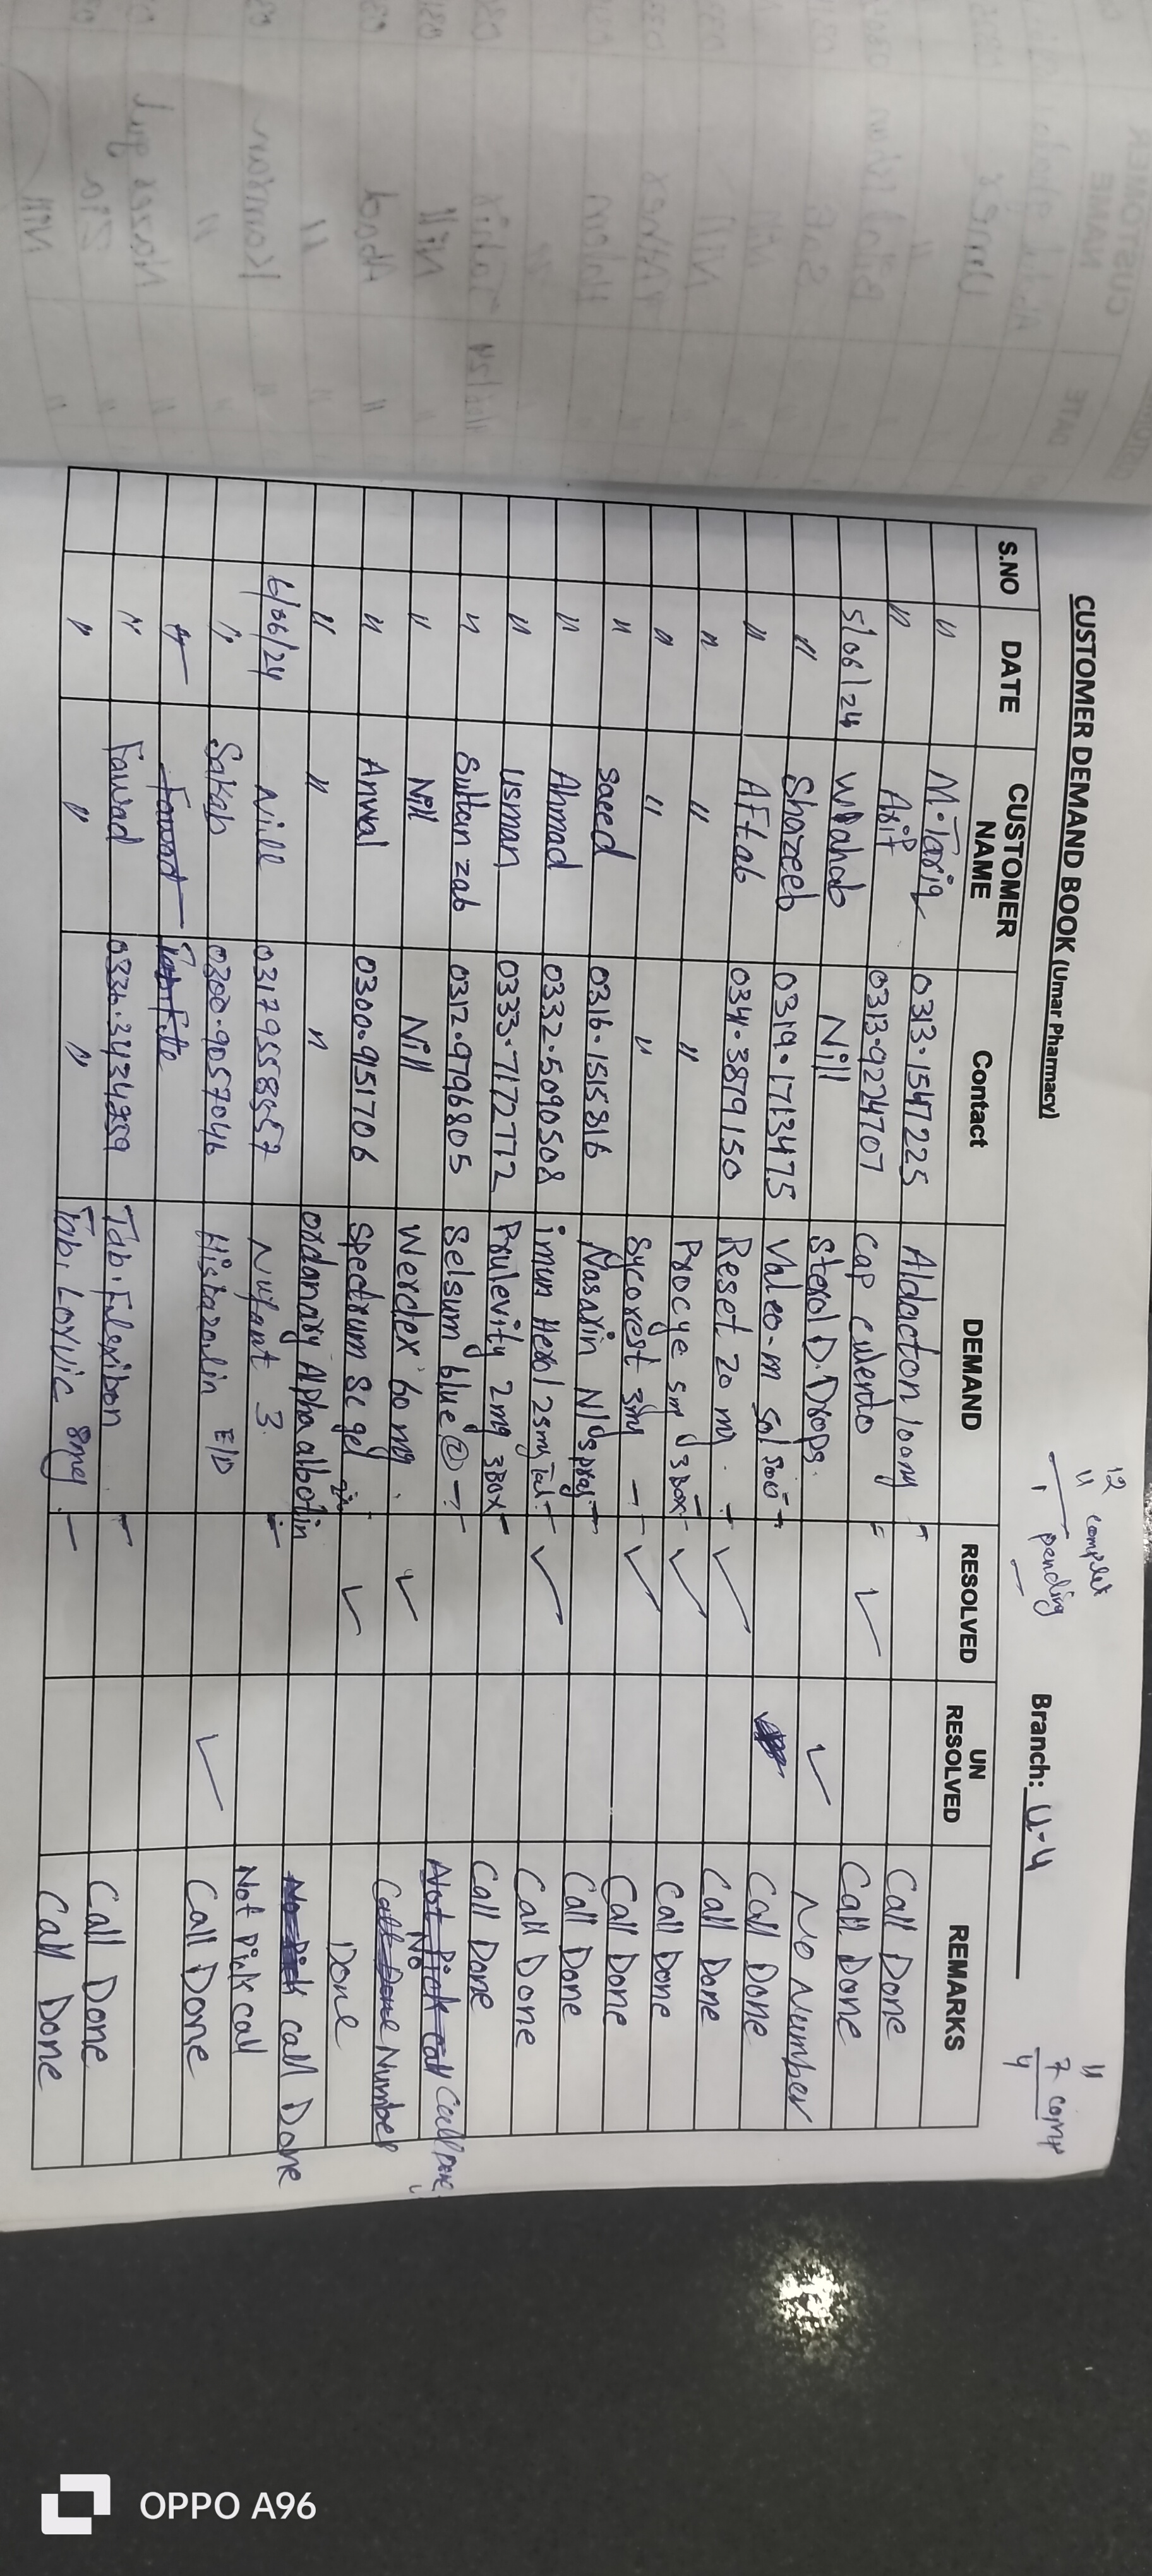 CUSTOMER DEMAND BOOK (Umar Pharmacy)
12
11 complet
1 pending
Branch: U-4
11
7 comp
4
S.NO DATE CUSTOMER NAME Contact DEMAND RESOLVED UN RESOLVED REMARKS
" M.Tariq 0313.1547225 Aldacton 100mg Call Done
" Asif 0313.9224707 Cap culendo ✓ Call Done
5/06/24 Wahab Nill Sterol D.Drops. ✓ No Number
" Shazeeb 0319.1713475 Valeo-m Sol 500 Call Done
" Aftab 0341.3879150 Reset 20 mg. ✓ Call Done
" " " Procye 5mg 3Box ✓ Call Done
" " " Sycorest 3mg ✓ Call Done
" Saeed 0316.1515816 Nasarin N/Spray Call Done
" Ahmad 0332.5090508 imun Hexal 25mg Tab ✓ Call Done
" Usman 0333.7172772 Prulevity 2mg 3Box Call Done
" Sultan zab 0312.9796805 Selsum blue ② Call Done
" Nill Nill Werdex 60 mg. ✓ No Number
" Anwal 0300.9151706 Spectrum Sc gel ✓ Done
" " " ordanary Alpha albotin call Done
6/06/24 Nill 03179558557 Nufant 3. Not Pick call
" Sakab 0300.9057046 Histazolin E/D ✓ Call Done
" Fawad
" Fawad 0336.3434859 Tab. Fulexibon Call Done
" " " Tab. Lorvic 8mg Call Done
OPPO A96